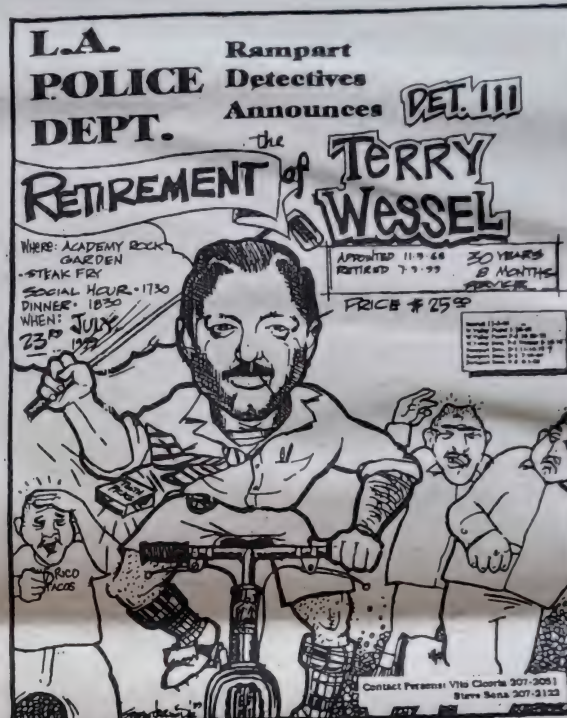 L.A.
POLICE
DEPT.
Rampart
Detectives
Announces
the
RETIREMENT of
DET. III
TERRY
WESSEL
WHERE: ACADEMY ROCK
GARDEN
• STEAK FRY
SOCIAL HOUR • 1730
DINNER • 1830
WHEN: JULY
23RD
APPOINTED
RETIRED
30 YEARS
8 MONTHS
SERVICE
PRICE $ 25.00
RICO
TACOS
Contact Persons: Vito 207-2051
Steve Sena 207-2122